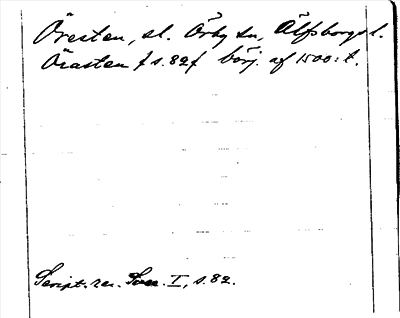 Öresten, sl. Örby sn, Älfsborgs l.
Örasten f s. 82 f börj. af 1500:t.
Script. rer. Svec. I, s. 82.